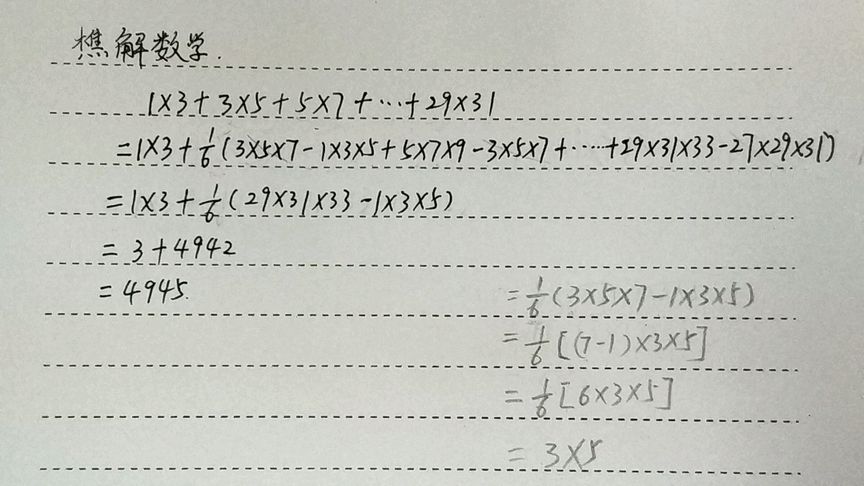 樵解数学.
1×3+3×5+5×7+…+29×31
=1×3+1/6(3×5×7-1×3×5+5×7×9-3×5×7+……+29×31×33-27×29×31)
=1×3+1/6(29×31×33-1×3×5)
=3+4942
=4945.
=1/6(3×5×7-1×3×5)
=1/6[(7-1)×3×5]
=1/6[6×3×5]
=3×5